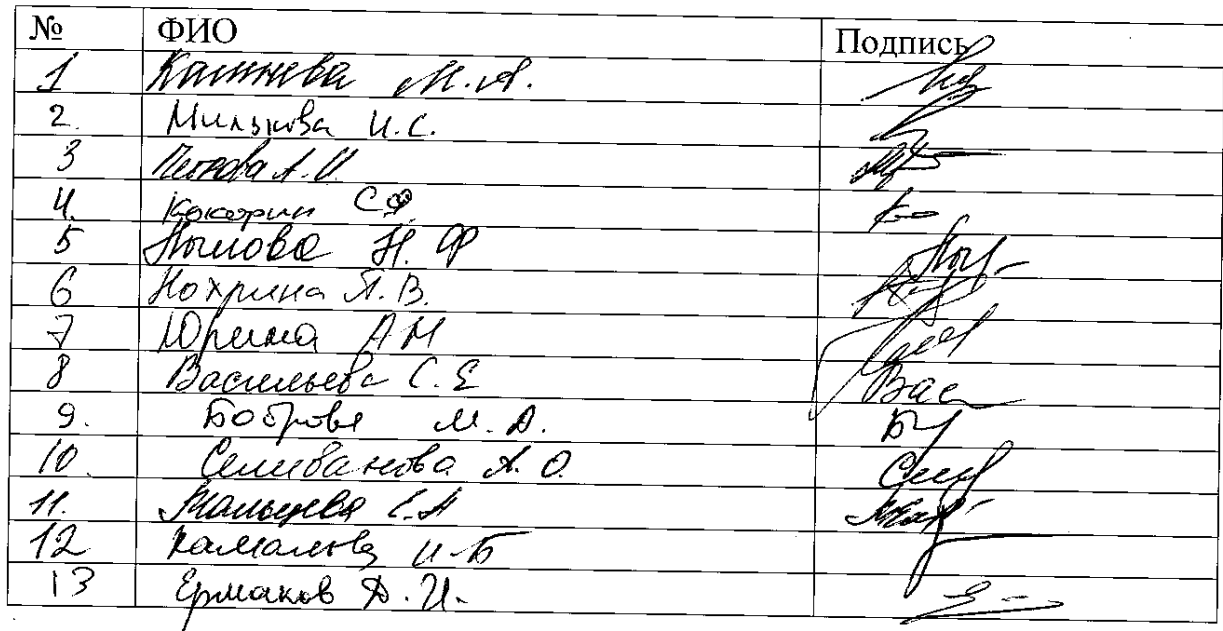 № ФИО Подпись
1 М.А.
2. Милькова И.С.
3 А.И.
4. Кокорин С.Ф.
5 Нылова Н.Ф
6 Нохрина Л.В.
7 Юрина А М
8 Васильева С.Е Вас
9. Боброва М.А. Б
10. Селиванова А.О. Сел
11. Мальцева С.А
12 Камалова И.Б
13 Ермаков Д.И.